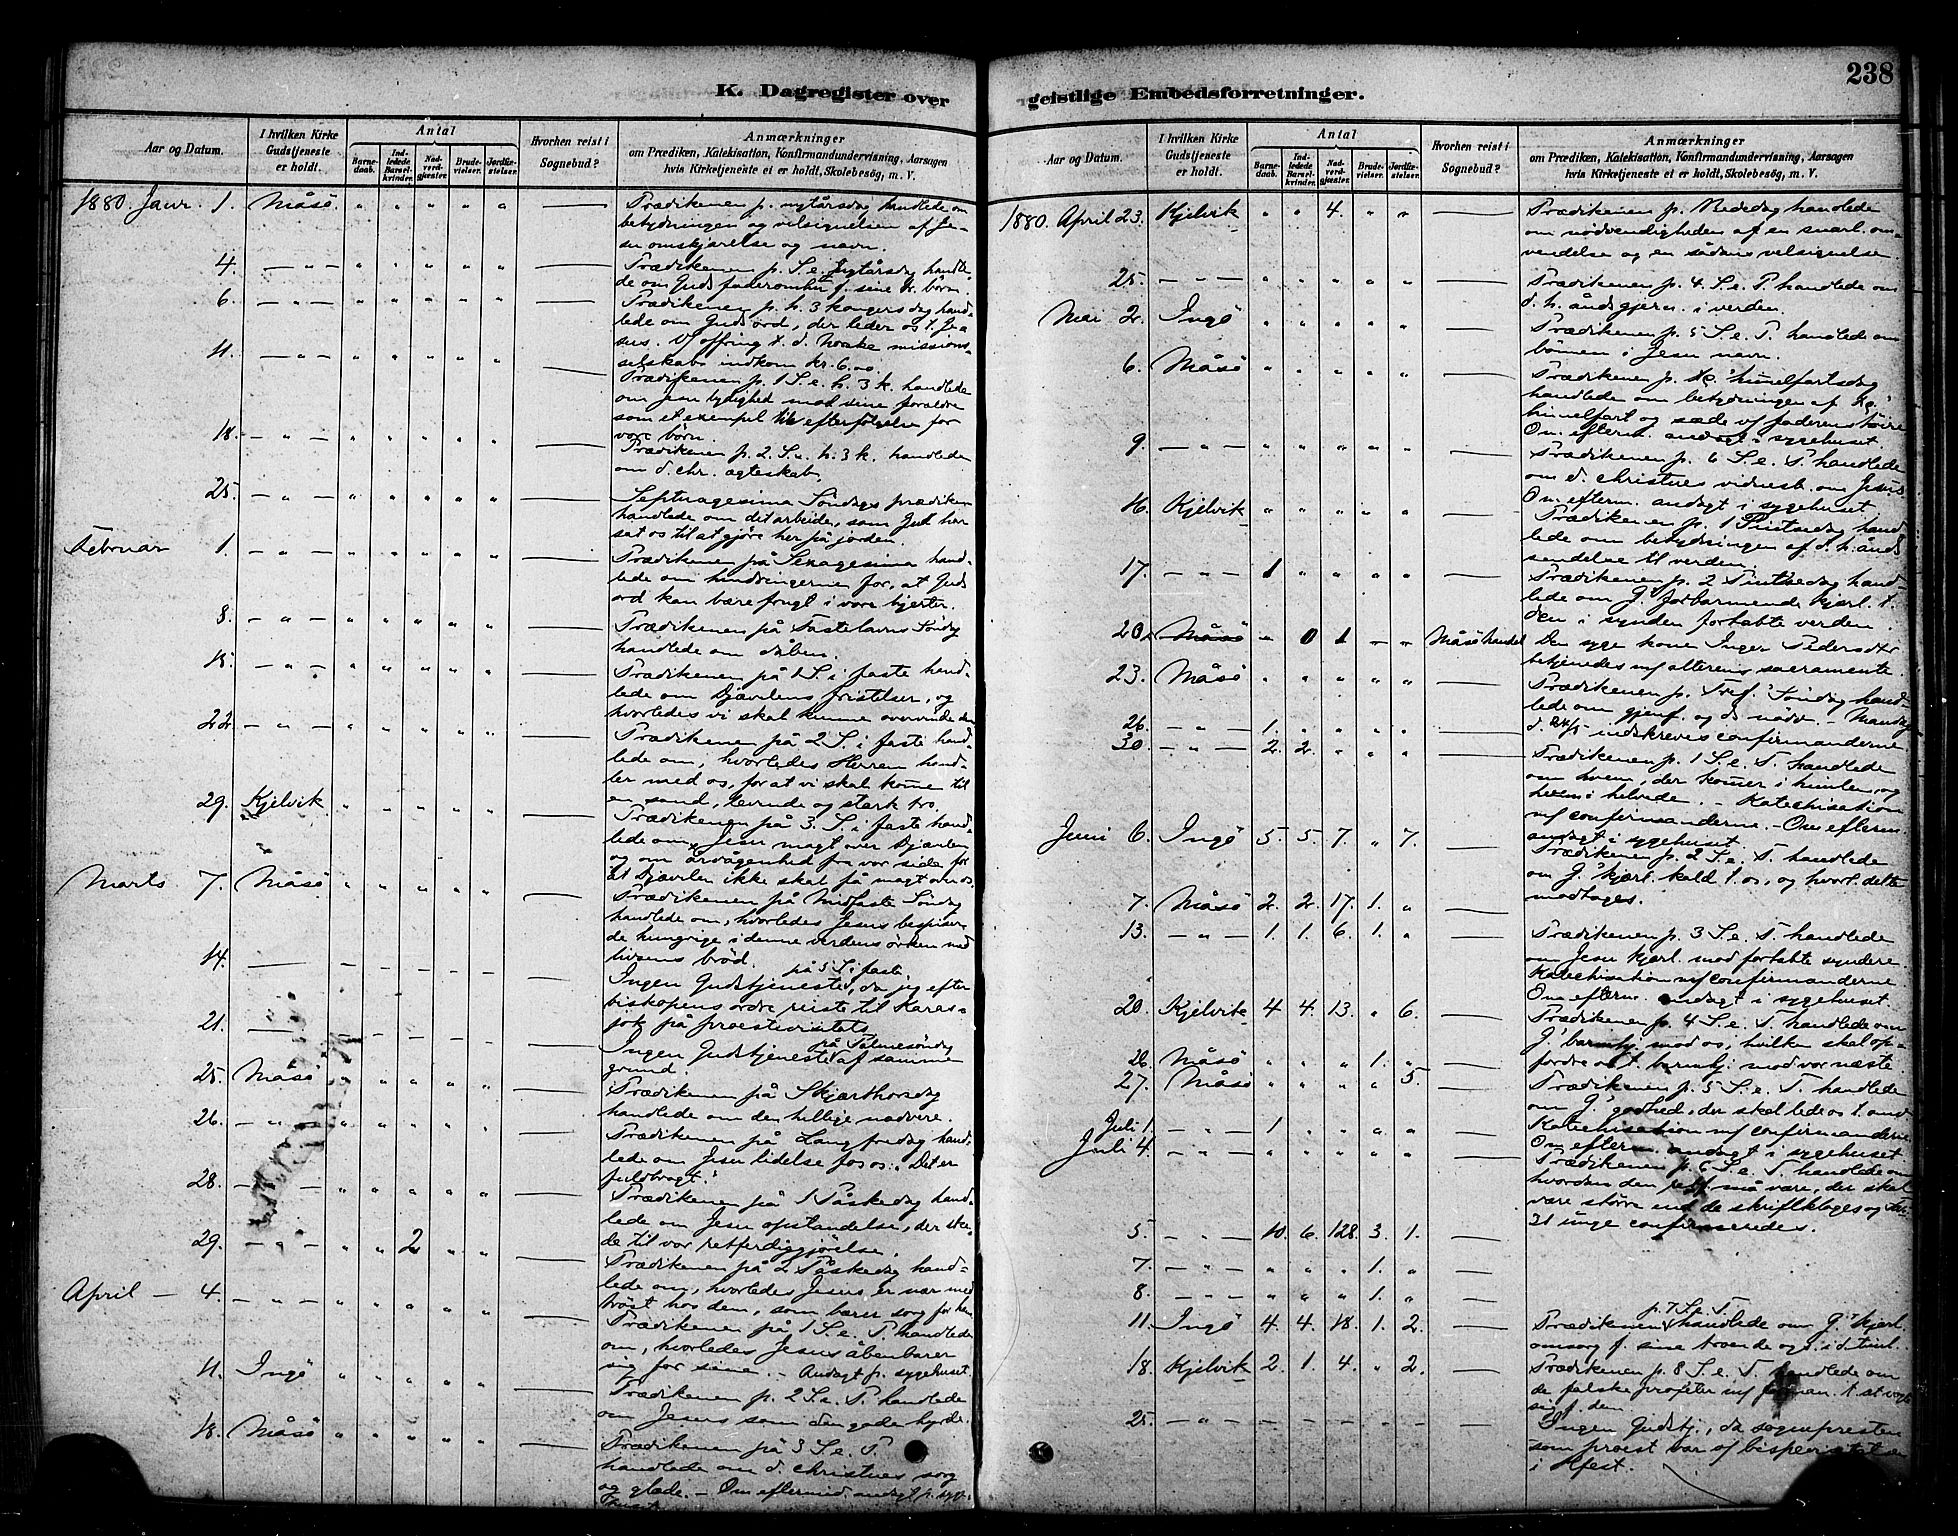 238
K. Dagregister over
geistlige Embedsforretninger.
Aar og Datum.
I hvilken Kirke Gudstjeneste er holdt.
Antal
Barne-daab.
Ind-ledede Barsel-kvinder.
Nad-verd-gjæster.
Brude-vielser.
Jordfæ-stelser.
Hvorhen reist i Sognebud?
Anmærkninger
om Prædiken, Katekisation, Konfirmandundervisning, Aarsagen
hvis Kirketjeneste ei er holdt, Skolebesøg, m. V.
1880. Janr. 1. Måsö " " " " "
Prædikenen p. nytårsdag handlede om
betydningen og velsignelsen af Je-
su omskjærelse og navn.
4. — " — " " " " "
Prædikenen p. S. e. nytårsdag handle-
de om Guds faderomhu f. sine kr. børn.
6. — " — " " " " "
Prædikenen p. h. 3 kongersdag hand-
lede om Guds ord, der leder os t. Je-
sus. Vof offring t. d. norske missions-
selskab indkom kr. 6.00
11. — " — " " " " "
Prædikenen p. 1 S. e. h. 3 k. handlede
om Jesu lydighed mod sine forældre
som et exempel til efterfölgelse for
vore börn.
18. — " — " " " " "
Prædikenen p. 2. S. e. h. 3 k. handlede
om d. chr. ægteskab.
25. — " — " " " " "
Septuagesima Söndags prædiken
handlede om det arbeide, som Gud har
sat os til at gjöre her på jorden.
Februar 1. — " — " " " " "
Prædikenen på Sexagesima hand-
lede om hindringerne for, at Guds
ord kan bære frugt i vore hjerter.
8. — " — " " " " "
Prædikenen på Fastelavns Söndag
handlede om dåben.
15. — " — " " " " "
Prædikenen på 1 S. i faste hand-
lede om Djævelens fristelser, og
hvorledes vi skal kunne overvinde dem
22. — " — " " " " "
Prædikenen på 2 S. i faste hand-
lede om, hvorledes Herren hand-
ler med os, for at vi skal komme til
en sand, levende og stærk tro.
29. Kjelvik " " " " "
Prædikenen på 3. S. i faste hand-
lede om Jesu magt over Djævlen
og om årvågenhed fra vor side for
at Djævlen ikke skal få magt over os.
Marts 7. Måsö " " " " "
Prædikenen på Midfaste Söndag
handlede om, hvorledes Jesus bespiser
de hungrige i denne verdens örken med
livsens bröd.
14. — – – – – –
på 5 S. i faste
Ingen Gudstjeneste, da jeg efter
biskopens ordre reiste til Karas-
jok på proestevisitats
21. — – – – – –
på Palmesöndag
Ingen Gudstjeneste af samme
grund.
25. Måsö " " " " "
Prædikenen på Skjærthorsdag
handlede om den hellige nadvere.
26. — " — " " " " "
Prædikenen på Langfredag hand-
lede om Jesu lidelse for os: "Det er
fuldbragt."
28. — " — " " " " "
Prædikenen på 1 Påskedag hand-
lede om Jesu opstandelse, der ske-
de til vor retfærdiggjörelse.
29. — " — " " 2 " "
Prædikenen på 2 Påskedag hand-
lede om, hvorledes Jesus er nær med
tröst hos dem, som bærer sorg for ham
April — 4. — " — " " " " "
Prædikenen på 1 S. e. P. handlede
om, hvorledes Jesus åbenbarer
sig for sine. – Andagt p. sygehuset.
11. Ingö " " " " "
Prædikenen p. 2 S. e. P. handlede
om Jesus som den gode hyrde.
18. Måsö " " " " "
Prædikenen på 3 S. e. P.
handlede om d. christnes sorg
og glæde. – Om eftermid. andagt p. syge-
huset.
1880. April 23. Kjelvik " " 4. " "
Prædikenen p. Bededag handlede
om nödvendigheden af en snarl. om-
vendelse og en sådans velsignelse.
25. — " — " " " " "
Prædikenen p. 4. S. e. P. handlede om
d. h. ånds gjern. i verden.
Mai 2. Ingö " " " " "
Prædikenen p. 5 S. e. P. handlede om
bönnen i Jesu navn.
6. Måsö " " " " "
Prædikenen p. Kr. himelfartsdag
handlede om betydningen af Kr.'
himelfart og sæde v/ faderens höire
Om efterm. andagt i sygehuset.
9. — " — " " " " "
Prædikenen p. 6 S. e. P. handlede
om d. christnes vidnesb. om Jesus
Om efterm. andagt i sygehuset.
16. Kjelvik " " " " "
Prædikenen p. 1 Pintsedag hand-
lede om betydningen af d. h. ånds
sendelse til verden.
17. — " — 1 " " " "
Prædikenen p. 2 Pintsedag hand-
lede om G' forbarmende kjærl. t.
den i synden fortabte verden.
20. Måsö – 0 1 – – Måsöhandel
Den syge kone Inger Pedersdtr
betjenedes m/ alterens sacramente.
23. Måsö " " " " "
Prædikenen p. Tref. Söndag hand-
lede om gjenf. og ds nödv. – Mandag
d. 24/5 indskreves confirmanderne.
26. — " — 1. " " " "
30. — " — 2. 2. " " "
Prædikenen p. 1 S. e. T. handlede
om hvem, der kommer i himlen, og
hvem i helvede. – Katechisation
m/ confirmanderne. – Om efterm.
andagt i sygehuset.
Juni 6. Ingö 5. 5. 7. " 7.
Prædikenen p. 2 S. e. T. handlede
om G' kjærl. kald t. os, og hvorl. dette
modtages.
7. Måsö 2. 2. 17. 1. "
13. — " — 1. 1. 6. 1. "
Prædikenen p. 3 S. e. T. handlede
om Jesu kjærl. mod fortabte syndere.
Katechisation m/ confirmanderne
Om efterm. andagt i sygehuset.
20. Kjelvik 4 4. 13. " 6.
Prædikenen p. 4 S. e. T. handlede om
G' barmhj. mod os, hvilken skal op-
fordre os t. barmhj. mod vor næste
26. Måsö " " " 1. "
27. Måsö " " " " 5.
Prædikenen p. 5 S. e. T. handlede
om G' godhed, der skal lede os t. omv.
Katechisation m/ confirmanderne.
Om efterm. andagt i sygehuset
Juli 1. — " — 1 " " "
Juli 4. — " —
Prædikenen p. 6 S. e. T. handlede om
hvordan den retf. må være, der skal
være större end de skriftkloges og
21 unge confirmeredes.
5. — " — 10. 6. 128. 3. 1.
7. — " — " " " 1. "
8. — " — " " " 1. "
11. Ingö 4. 4. 18. 1. 2.
p. 7 S. e. T.
Prædikenen handlede om G' kjærl.
omsorg f. sine troende ogs. i d. timl.
18. Kjelvik 2. 1. 4. " 2.
Prædikenen p. 8 S. e. T. handlede om
de falske profeter m/ forman. t. at vogte
sig f. dem.
25. — " — – – – – –
Ingen Gudstj., da sognepresten
som proest var på bispevisitatsen
i Hfest.